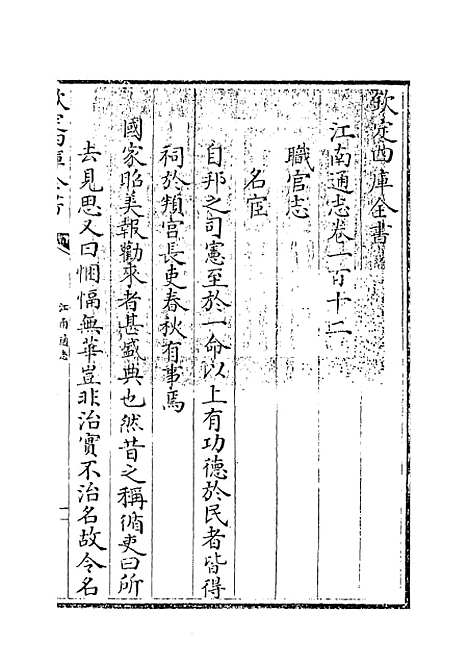 欽定四庫全書
江南通志卷一百十二
職官志
名宦
自邦之司憲至於一命以上有功德於民者皆得
祠於頖宫長吏春秋有事焉
國家昭美報勸來者甚盛典也然昔之稱循吏曰所
去見思又曰悃愊無華豈非治實不治名故今名
欽定四庫全書
江南通志
一